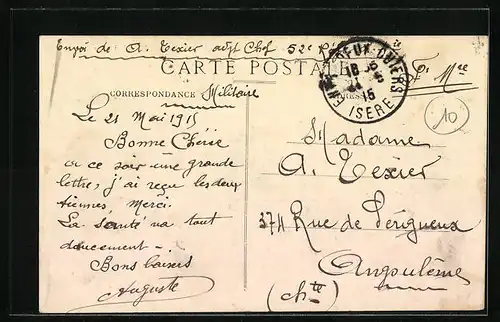 Envoi de A. Texier adjt Chef 52e
Fse Mre
CARTE POSTALE
DEUX-GUIERS
18
15
ISERE
CORRESPONDANCE Militaire
Le 21 Mai 1915
Bonne Chérie
ce soir une grande
lettre, j'ai reçu les deux
tiennes Merci.
La santé va tout
doucement -.
Bons baisers
Auguste
Madame
A. Texier
374 Rue de Périgueux
Angoulême
(Chte)
10